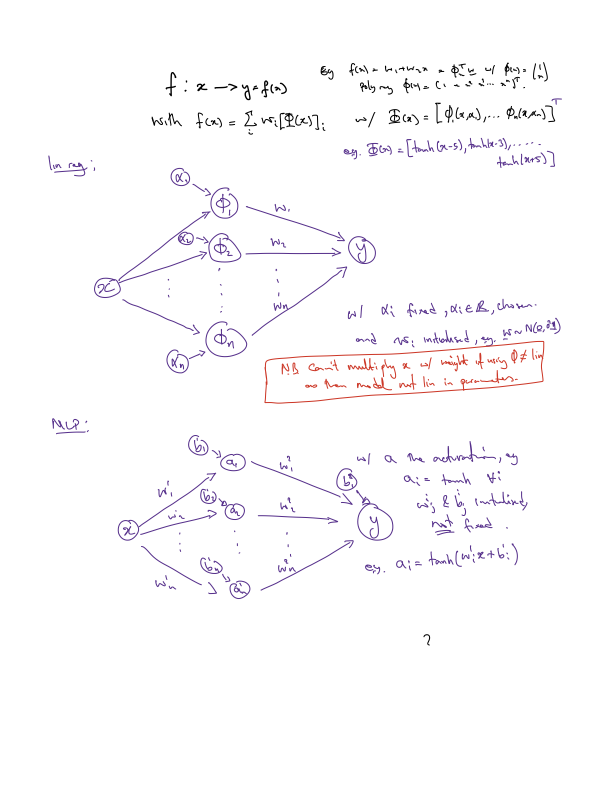 eg f(x) = w₁+w₂x = Φᵀw w/ ϕ(x) = (1 x)
f : x → y = f(x)
poly reg ϕ(x) = (1 x x² x³ ... xⁿ)ᵀ.
with f(x) = Σᵢ wᵢ[Φ(x)]ᵢ w/ Φ(x) = [ϕ₁(x,α₁), ... ϕₙ(x,αₙ)]ᵀ
eg. Φ(x) = [tanh(x-5), tanh(x-3), .....
tanh(x+5)]
lin reg :
α₁
ϕ₁ w₁
α₂ ϕ₂ w₂ y
x
wₙ
ϕₙ
αₙ
w/ αᵢ fixed, αᵢ ∈ ℝ, chosen.
and wᵢ initialised, eg. w ~ N(0, I)
NB Can't multiply x w/ weight if using ϕ ≠ lin
as then model not lin in parameters.
MLP :
b¹₁ a₁ w²₁
w¹₁
b¹₂ a₂ w²₂ b²₁
x w¹₂ y
b¹ₙ aₙ w²ₙ
w¹ₙ
w/ a the activation, eg
aᵢ = tanh ∀i
wⁱⱼ & bⁱⱼ initialised,
not fixed.
eg. aᵢ = tanh(w¹ᵢx + b¹ᵢ)
?